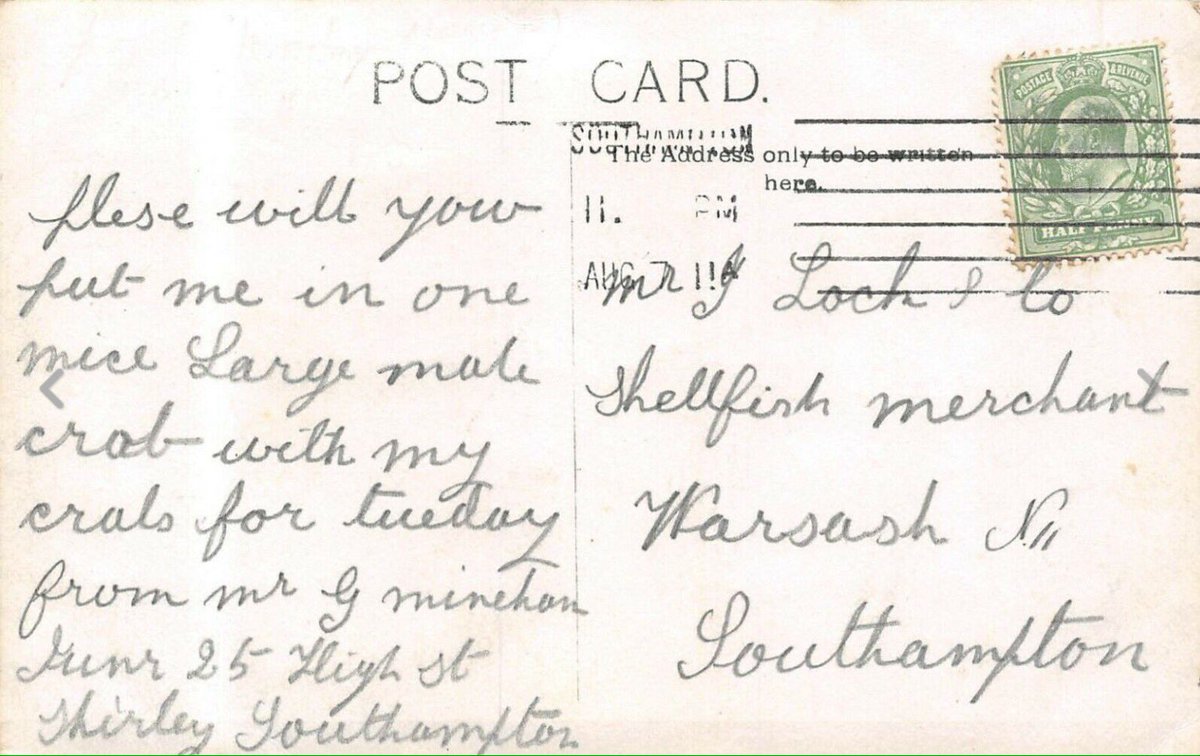 POST CARD.
The Address only to be written
here.
SOUTHAMPTON
11. PM
AUG 7 11
POSTAGE & REVENUE
HALF PENNY
plese will yow
put me in one
nice Large male
crab with my
crabs for tueday
from mr G minehan
Junr 25 High st
Shirley Southampton
mr J Lock & Co
Shellfish merchant
Warsash Nr
Southampton